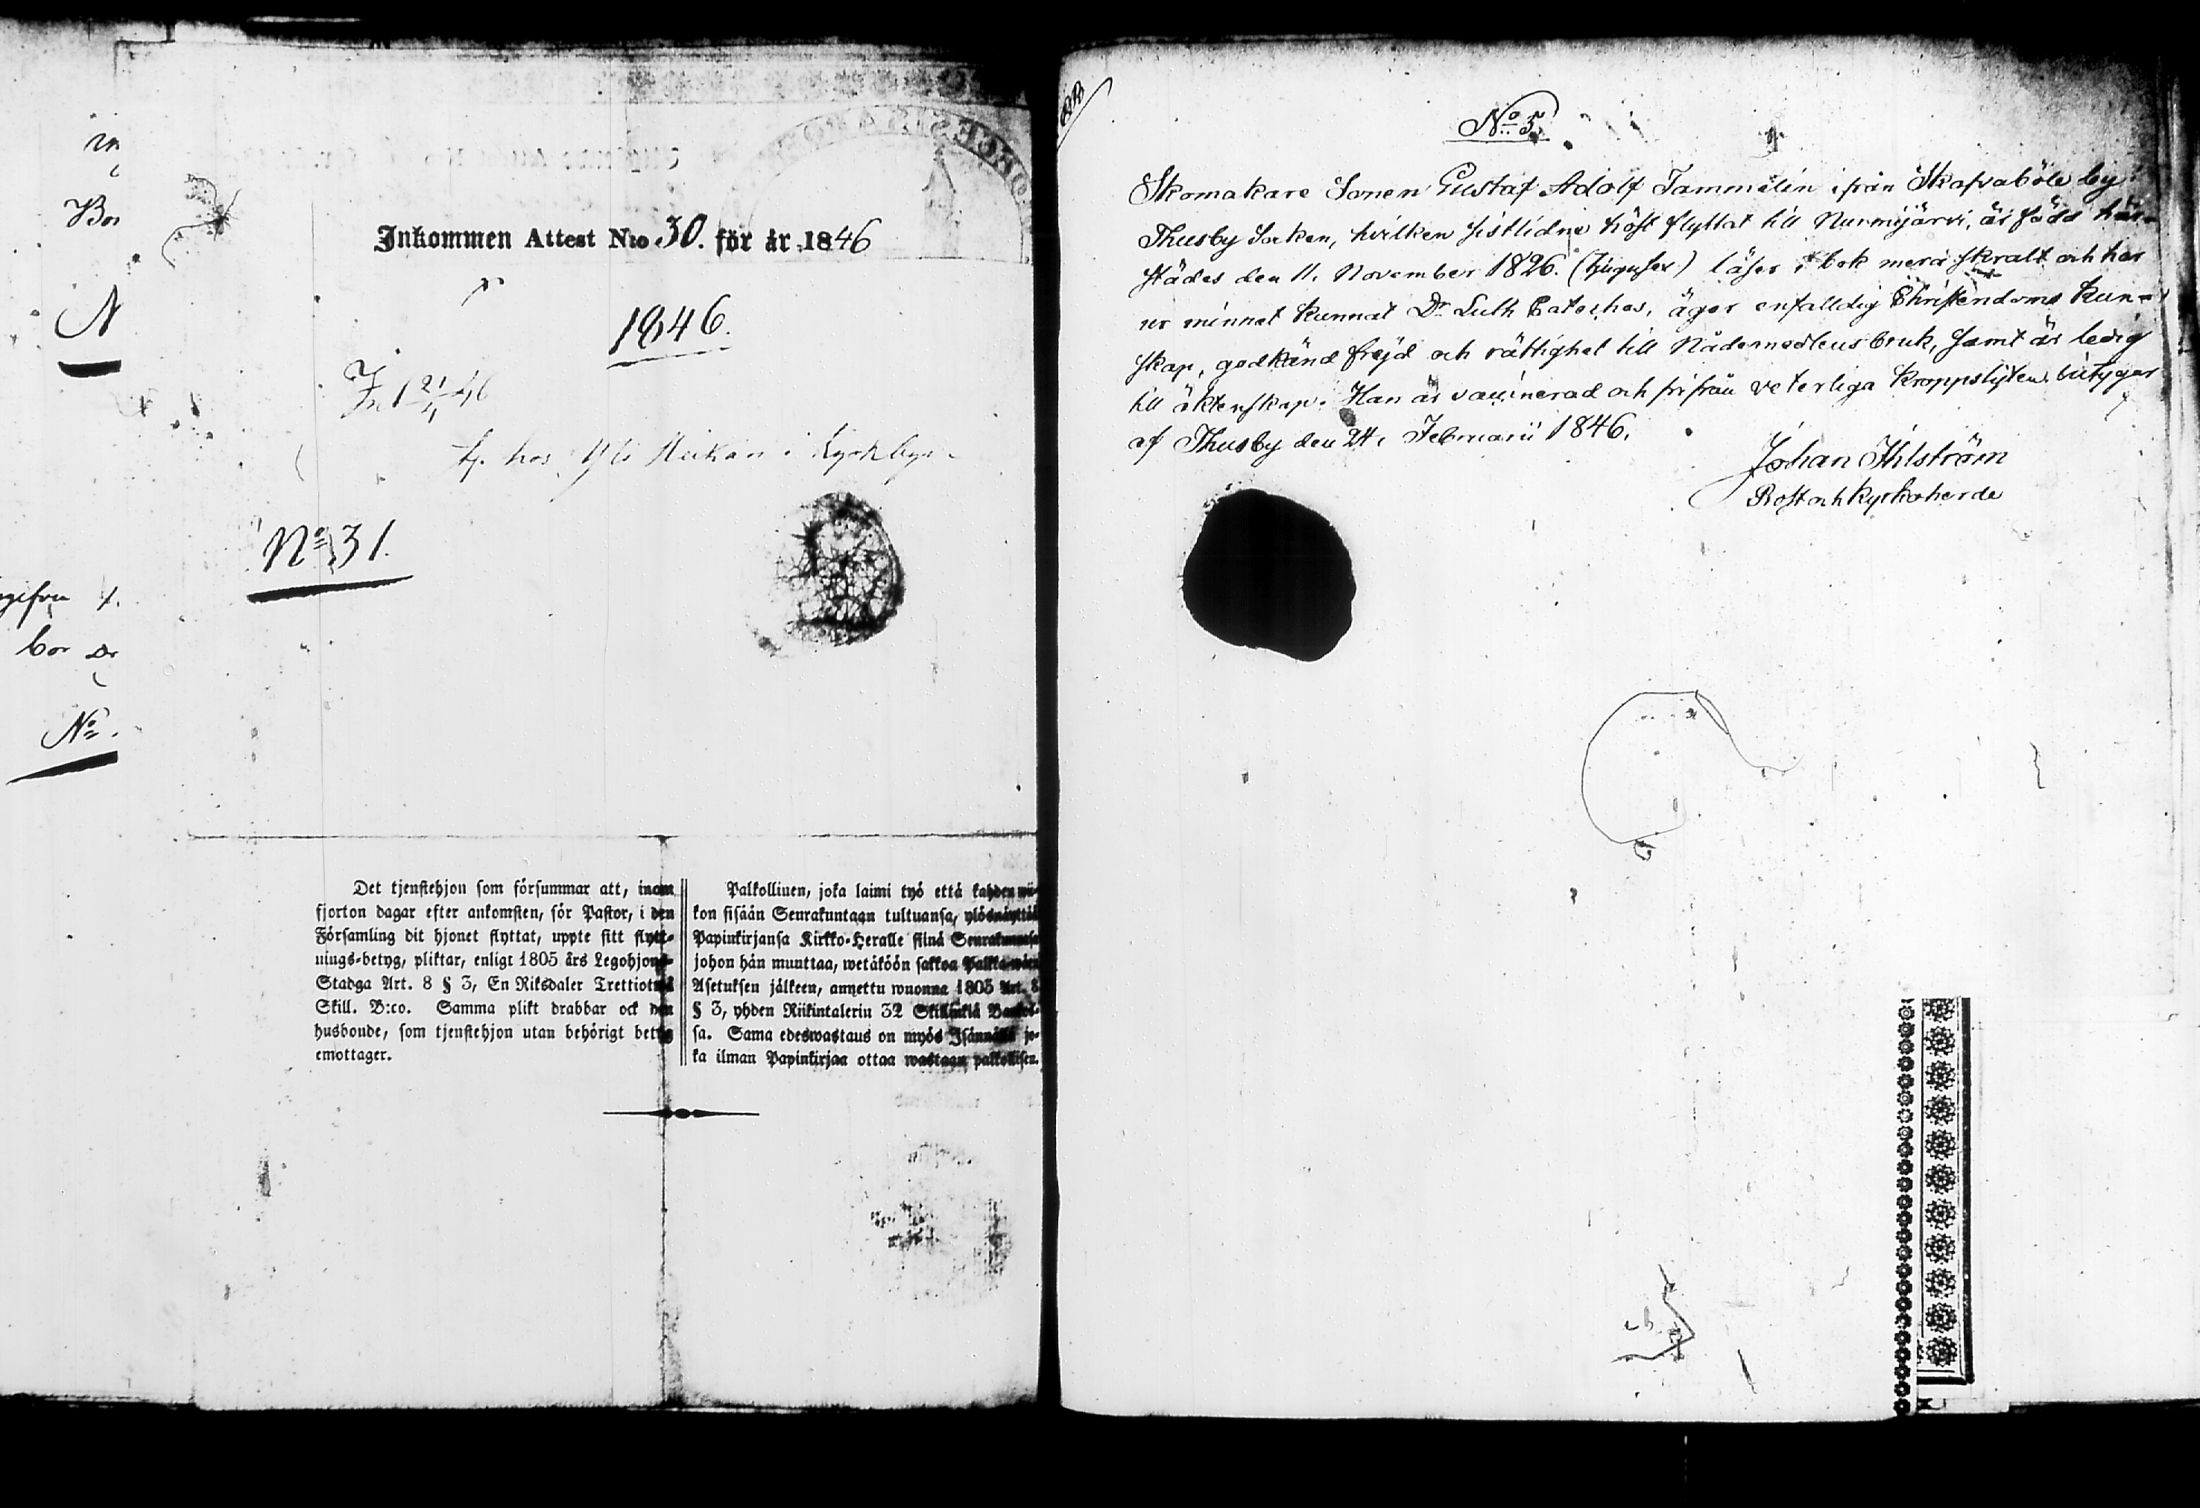 in
Bor
N
gifven
bor
No.
Inkommen Attest N:o 30. för år 1846
1846.
In 1 21/4 46
tj. hos Yli Heikas i Kyrkbyn
No 31.
Det tjenstehjon som försummar att, inom
fjorton dagar efter ankomsten, för Pastor, i den
Församling dit hjonet flyttat, uppte sitt flytt-
nings-betyg, pliktar, enligt 1805 års Legohjons-
Stadga Art. 8 § 3, En Riksdaler Trettiotwå
Skill. B:co. Samma plikt drabbar ock den
husbonde, som tjenstehjon utan behörigt betyg
emottager.
Palkollinen, joka laimi lyö että kahden wii-
kon sisään Seurakuntaan tultuansa, ylösnäyttää
Papinkirjansa Kirkko-Heralle siinä Seurakunnasa
johon hän muuttaa, wetäköön sakkoa Palkka-wäen
Asetuksen jälkeen, annettu wuonna 1805 Art. 8
§ 3, yhden Riikintalerin 32 Skillinkiä Bankos-
sa. Sama edeswastaus on myös Isännällä jo-
ka ilman Papinkirjaa ottaa wastaan palkollisen.
No 5
Skomakare Sonen Gustaf Adolf Tammelin ifrån Skafvaböle by
Thusby Socken, hvilken sistlidne höst flyttat till Nurmijärvi, är född här-
städes den 11. November 1826. (tjugusex) läser i bok mera skralt och har
ur minnet kunnat Dr Luth Cateches, äger enfalldig Christendoms kun-
skap, godkänd frejd och rättighet till Nådemedlens bruk, samt är ledig
till äktenskap. Han är vaccinerad och fri från veterliga kroppslyten. betygar
af Thusby den 24. Februarii 1846.
Johan Ihlström
Prost och Kyrkoherde